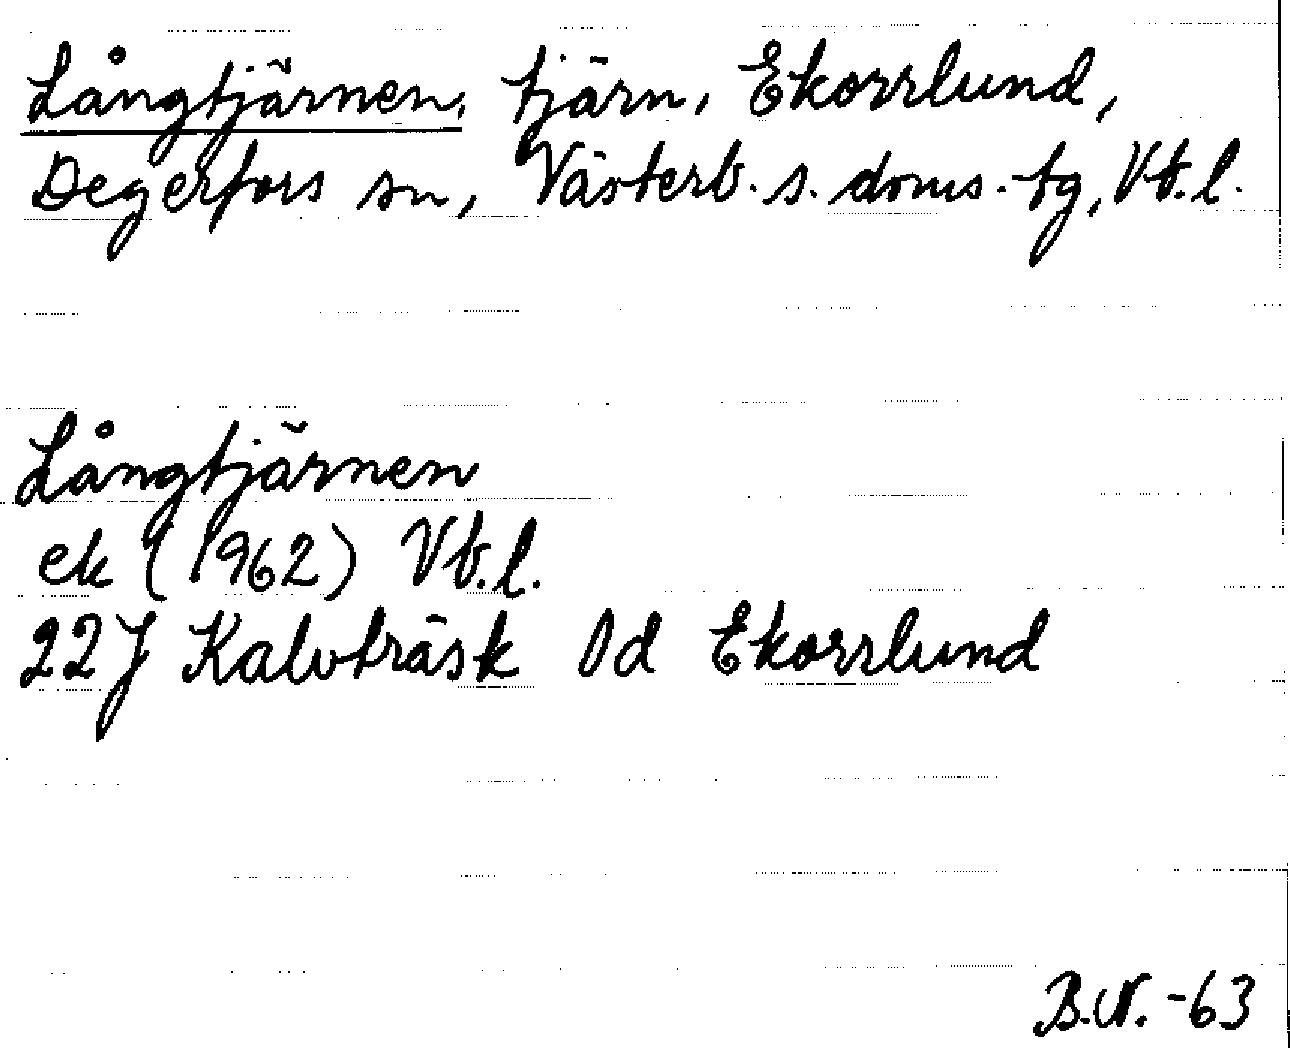 Långtjärnen, tjärn, Ekorrlund,
Degerfors sn, Västerb. s. doms.-tg, Vb. l.
Långtjärnen
ek (1962) Vb. l.
22J Kalvträsk 0d Ekorrlund
B.N. -63